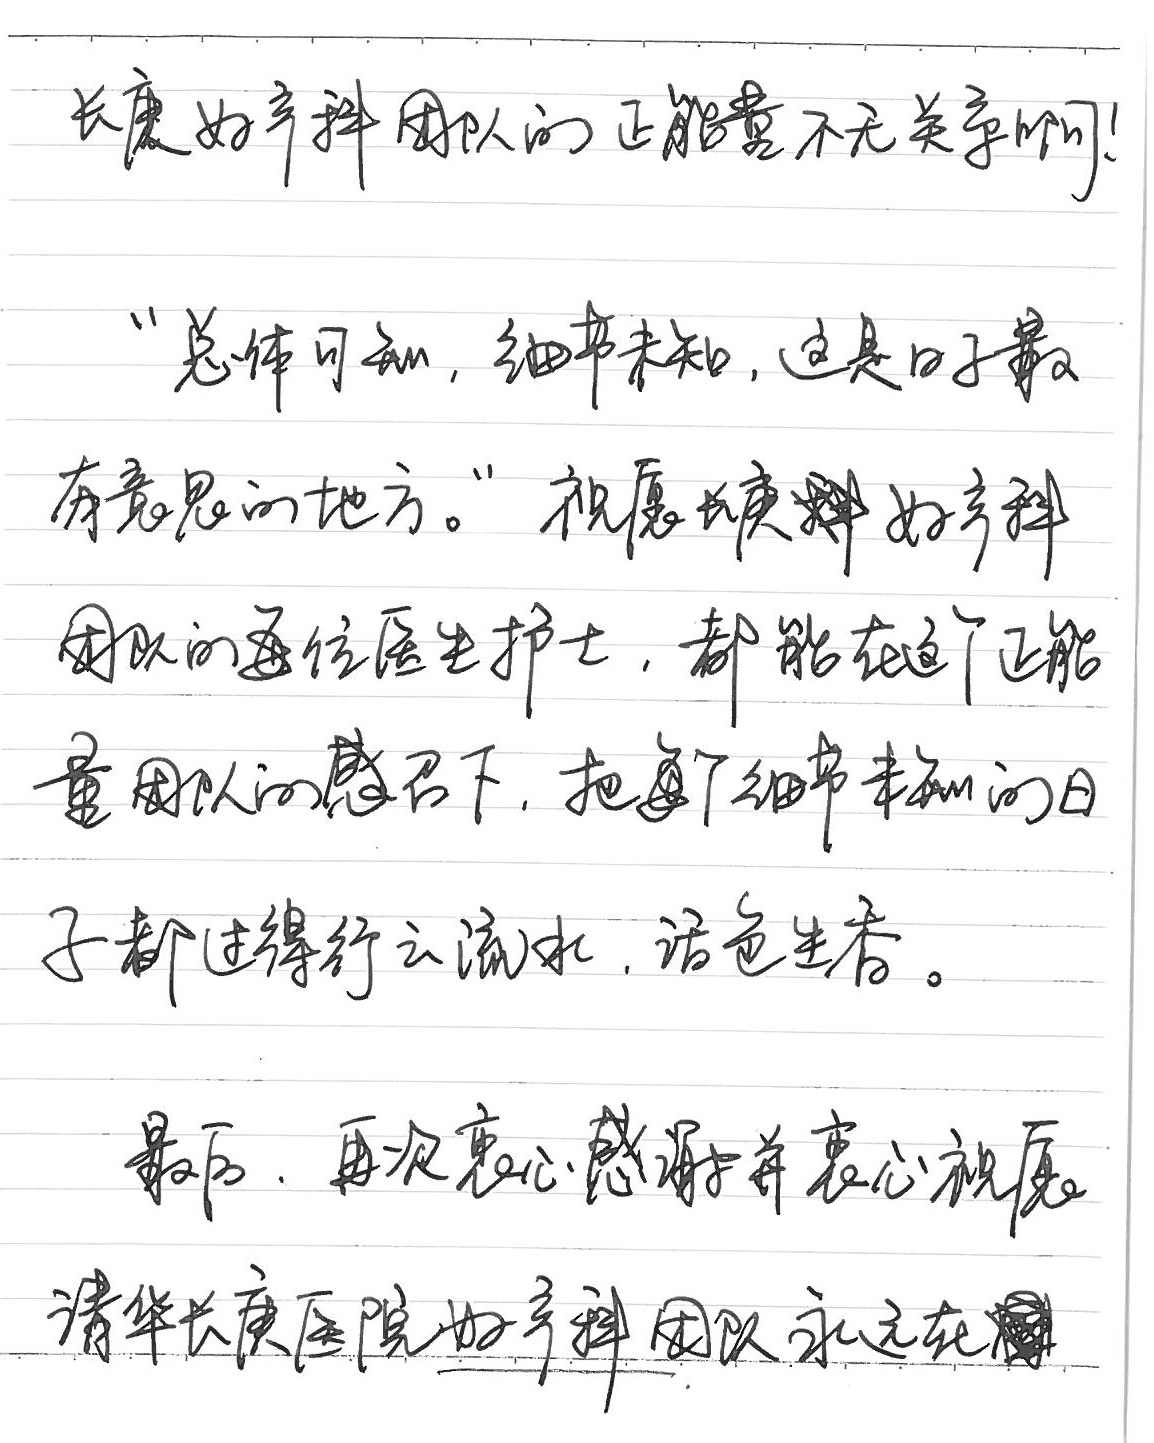 长庚妇产科团队的正能量不无关系啊!
"总体可知,细节未知,这是日子最
有意思的地方。"祝愿长庚妇产科
团队的每位医生护士,都能在这个正能
量团队的感召下,把每个细节未知的日
子都过得行云流水,活色生香。
最后,再次衷心感谢并衷心祝愿
清华长庚医院妇产科团队永远在